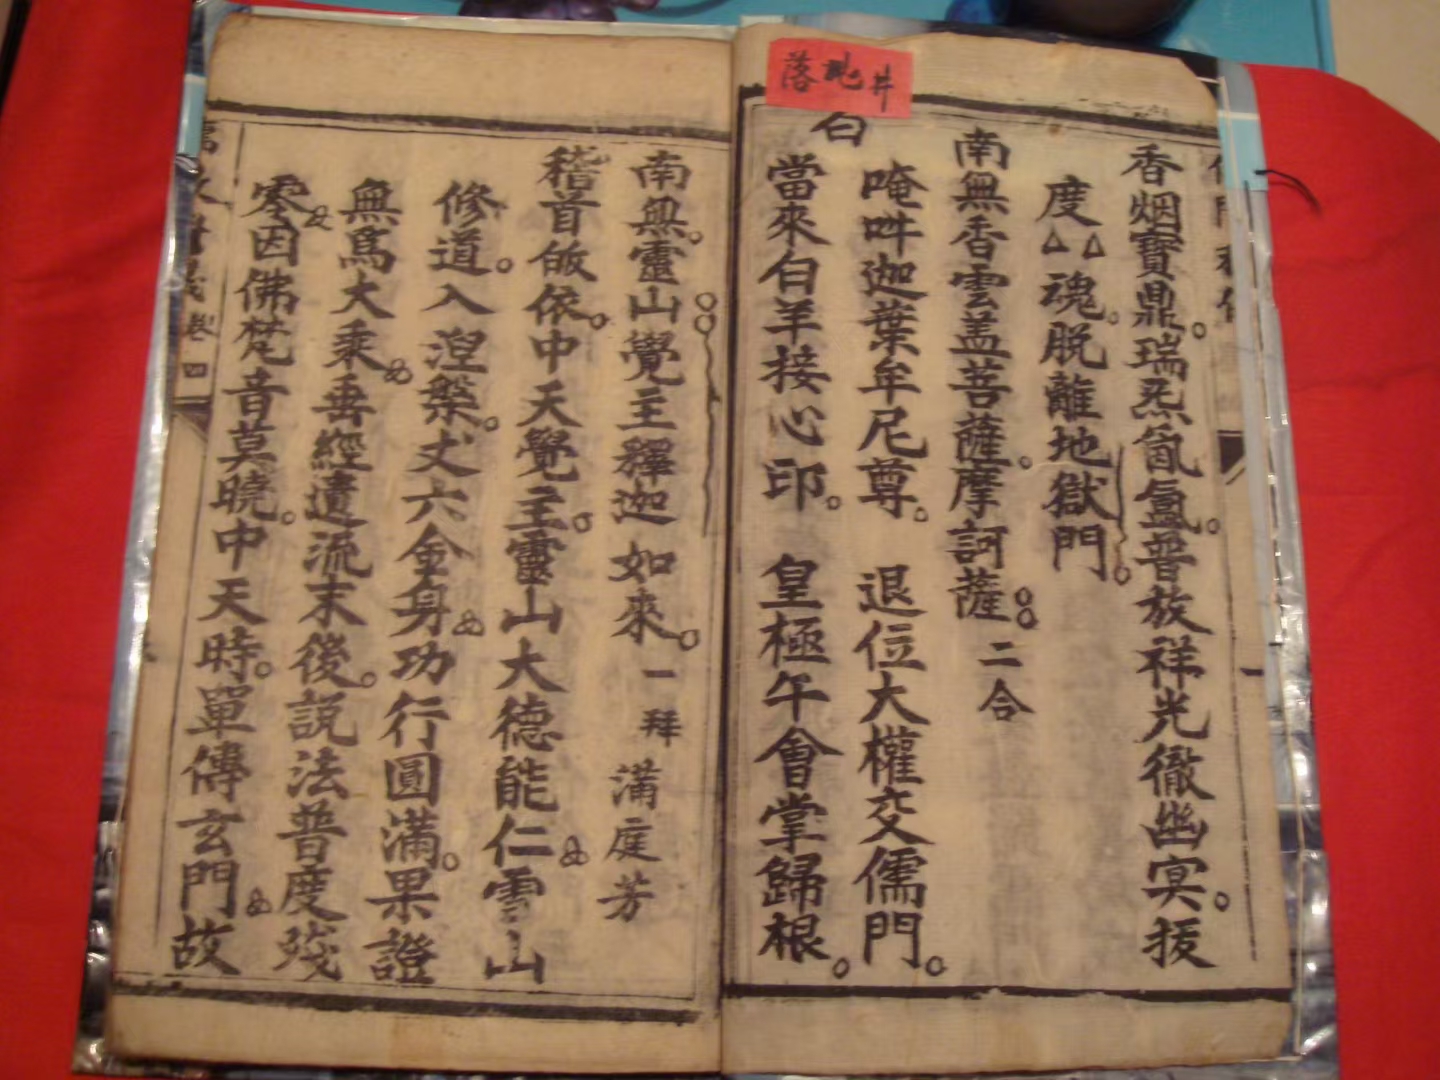 落地井
香烟寳鼎瑞炁氤氳普放祥光徹幽冥援
度魂脫離地獄門
南無香雲盖菩薩摩訶薩二合
唵吽迦葉牟尼尊 退位大權交儒門
白
當來白羊接心印 皇極午會掌歸根
南無靈山覺主釋迦如來一拜 滿庭芳
稽首皈依中天覺主靈山大德能仁雪山
修道入涅槃丈六金身功行圓滿果證
無爲大乘垂經遺流末後説法普度殘
零因佛梵音莫曉中天時單傳玄門故
卷四